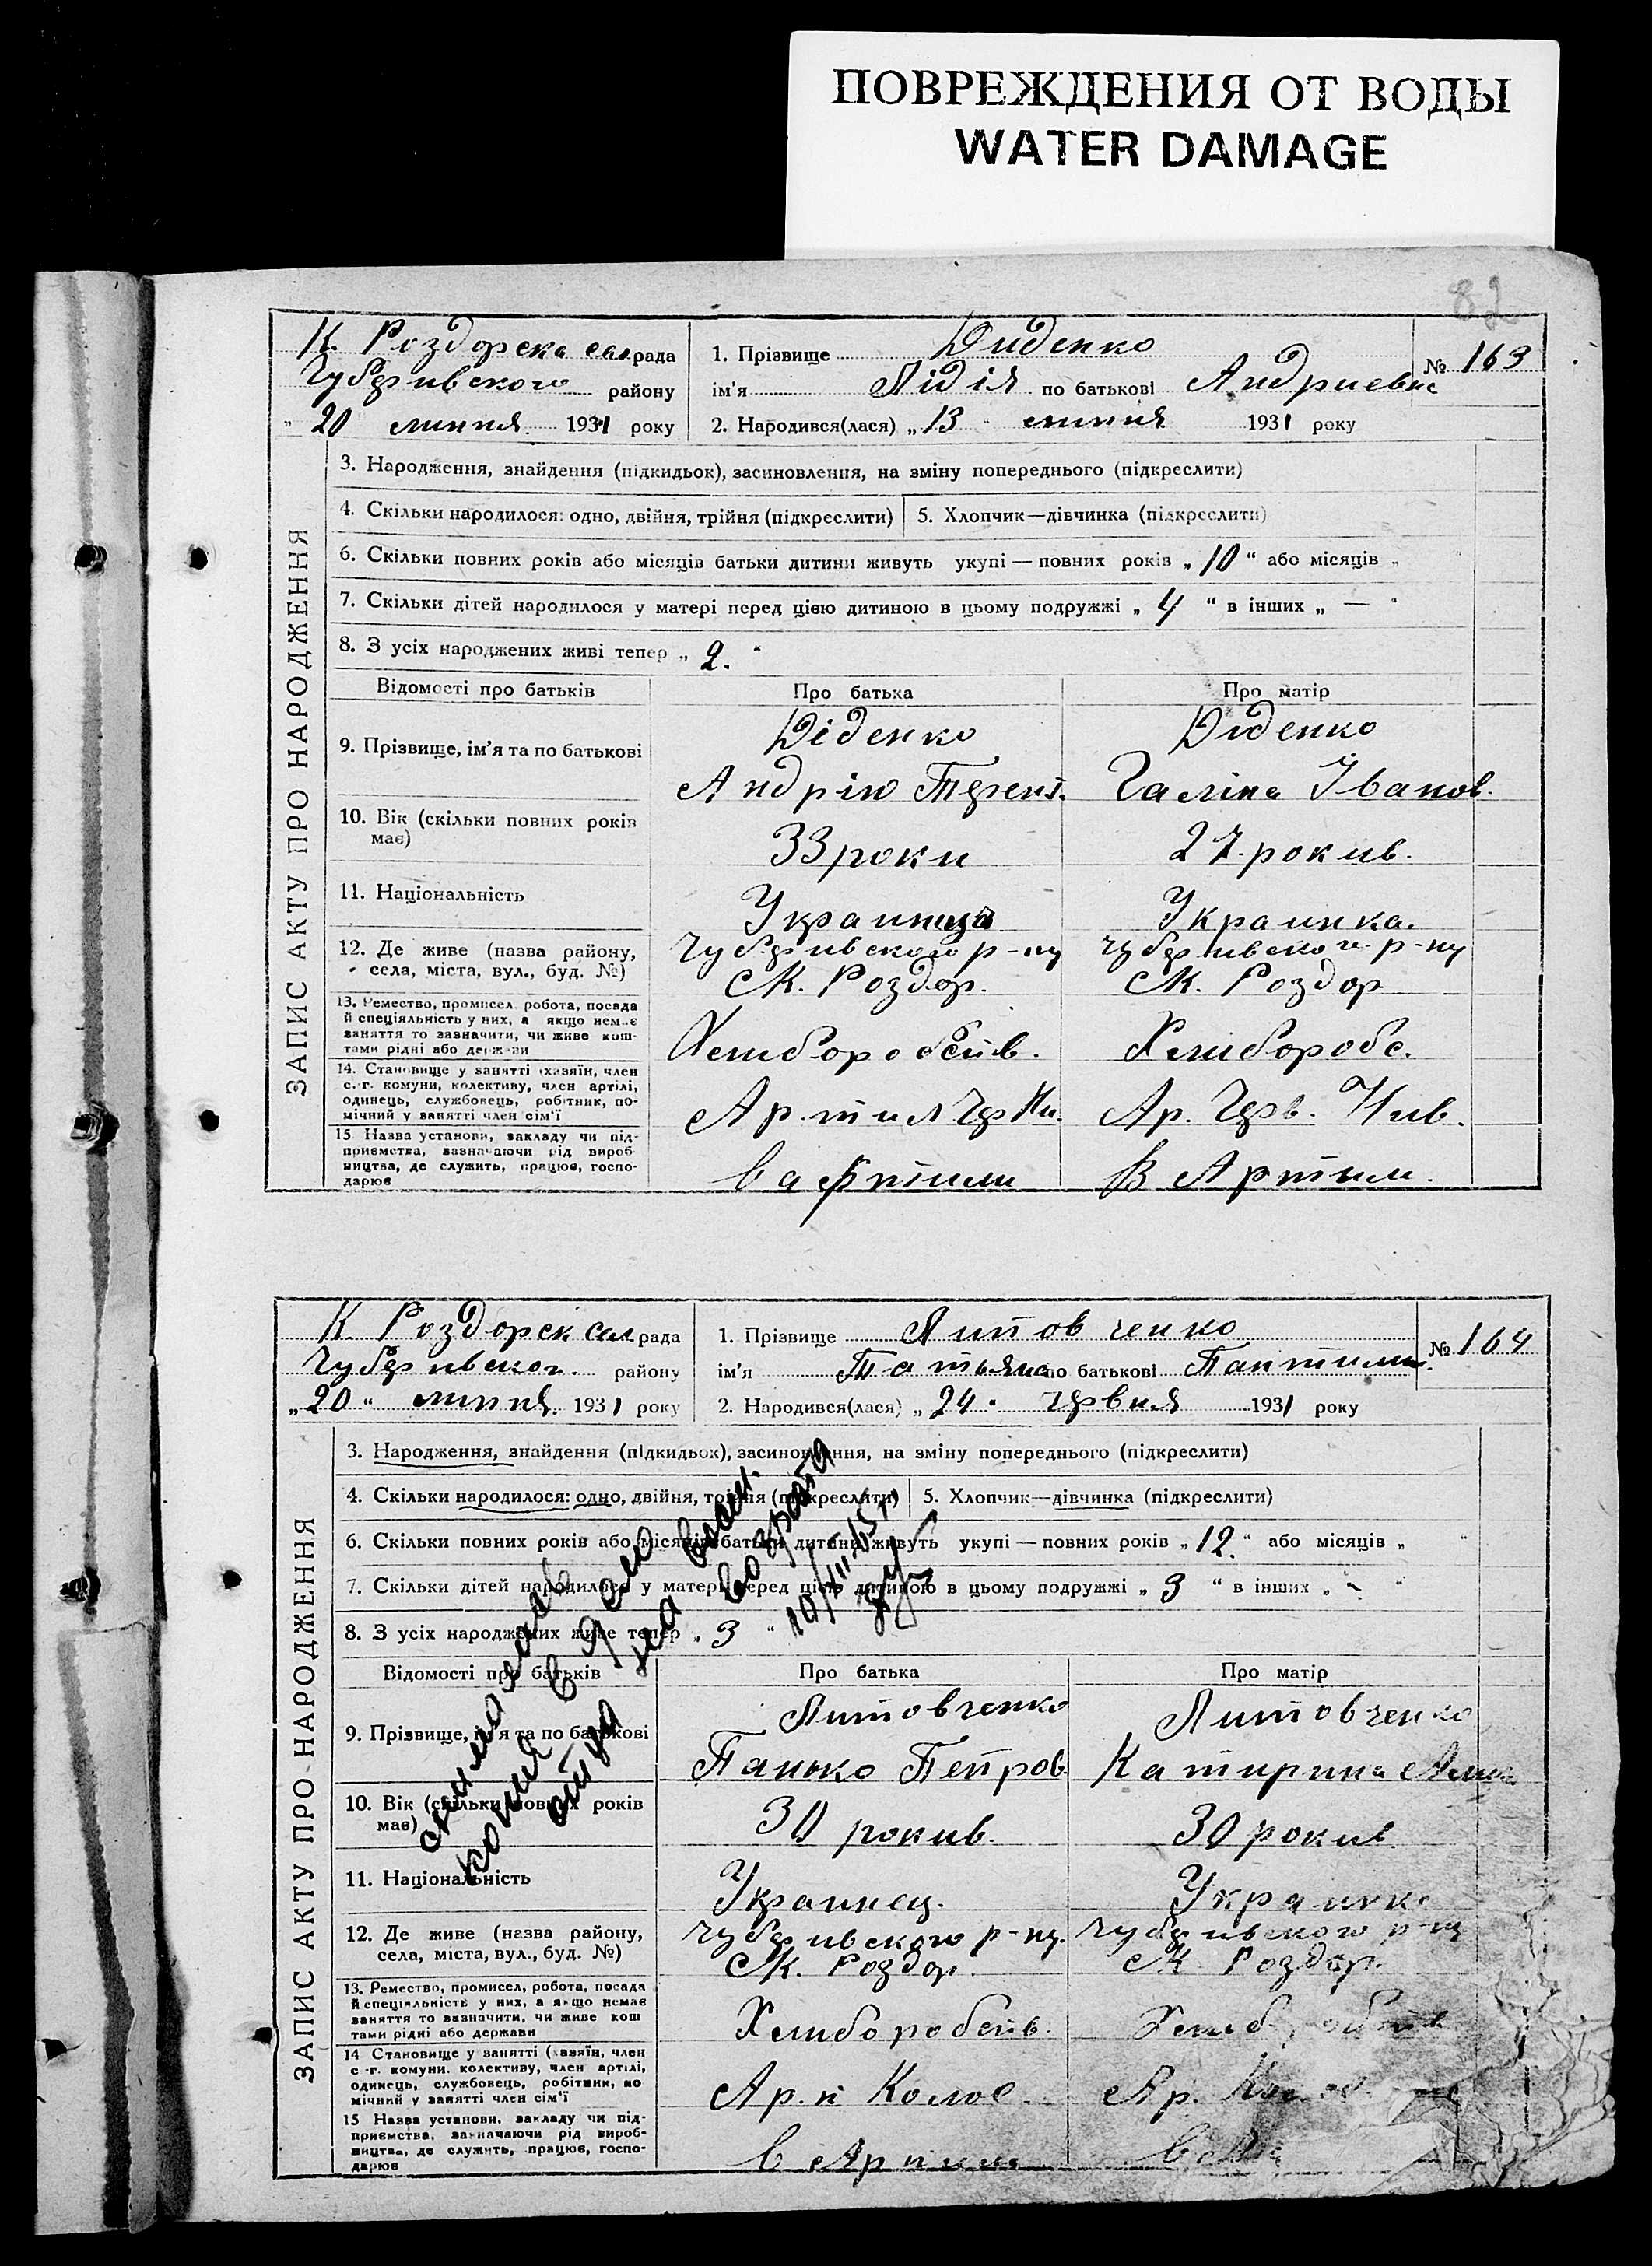 ПОВРЕЖДЕНИЯ ОТ ВОДЫ
WATER DAMAGE
82
К. Роздорска сел рада
Чубарівского району
„ 20 липня 1931 року
1. Прізвище Диденко
№ 163
ім'я Лідія по батькові Андриевн
2. Народився(лася) „ 13 " липня 1931 року
ЗАПИС АКТУ ПРО НАРОДЖЕННЯ
3. Народження, знайдення (підкидьок), засиновлення, на зміну попереднього (підкреслити)
4. Скільки народилося: одно, двійня, трійня (підкреслити)
5. Хлопчик—дівчинка (підкреслити)
6. Скільки повних років або місяців батьки дитини живуть укупі — повних років „ 10 “ або місяців „ "
7. Скільки дітей народилося у матері перед цією дитиною в цьому подружжі „ 4 “ в інших „ — “
8. З усіх народжених живі тепер „ 2. "
Відомості про батьків
Про батька
Про матір
9. Прізвище, ім'я та по батькові
Діденко
Андрію Терент.
Диденко
Галіна Іванов.
10. Вік (скільки повних років має)
33 роки
27. рокив.
11. Національність
Украинка.
12. Де живе (назва району,
села, міста, вул., буд. №)
р-ну
СК. Роздор.
р-ну
СК. Роздор
13. Ремество, промисел. робота, посада
й спеціяльність у них, а якщо немає
заняття то зазначити, чи живе кош-
тами рідні або держави
Хлиборобс.
14. Становище у занятті (хазяїн, член
с.-г. комуни, колективу, член артілі,
одинець, службовець, робітник, по-
мічний у занятті член сім'ї
Ар. Черв. Нив.
15. Назва установи, закладу чи під-
приємства, зазначаючи рід вироб-
ництва, де служить, працює, госпо-
дарює
в артили
В Артили.
К Роздорск сел рада
району
„ 20 “ липня. 1931 року
1. Прізвище Литовченко
№ 164
ім'я Татьяна по батькові Пантилим.
2. Народився(лася) „ 24 . червня 1931 року
ЗАПИС АКТУ ПРО НАРОДЖЕННЯ
3. Народження, знайдення (підкидьок), засиновлення, на зміну попереднього (підкреслити)
4. Скільки народилося: одно, двійня, трійня (підкреслити)
5. Хлопчик—дівчинка (підкреслити)
6. Скільки повних років або місяців батьки дитини живуть укупі — повних років „ 12. “ або місяців „ "
7. Скільки дітей народилося у матері перед цією дитиною в цьому подружжі „ 3 “ в інших „ - “
8. З усіх народжених живе тепер „ 3 "
копия
Відомості про батьків
Про батька
Про матір
9. Прізвище, ім'я та по батькові
Литовченко
Панько Петров
Литовченко
Катирина
10. Вік (скільки повних років
має)
30 рокив.
30 рокив
11. Національність
Украинец.
Украинка
12. Де живе (назва району,
села, міста, вул., буд. №)
р-ну.
СК. Роздор.
р-ну
СК Роздор.
13. Ремество, промисел, робота, посада
й спеціяльність у них, а якщо немає
заняття то зазначити, чи живе кош
тами рідні або держави
14 Становище у занятті (хазяїн, член
с -г. комуни. колективу, член артілі,
одинець, службовець, робітник, по
мічний у занятті член сім'ї
Колос
Ар.
15 Назва установи, закладу чи під-
приємства, зазначаючи рід вироб-
ництва, де служить, працює, госпо-
дарює
в Артили